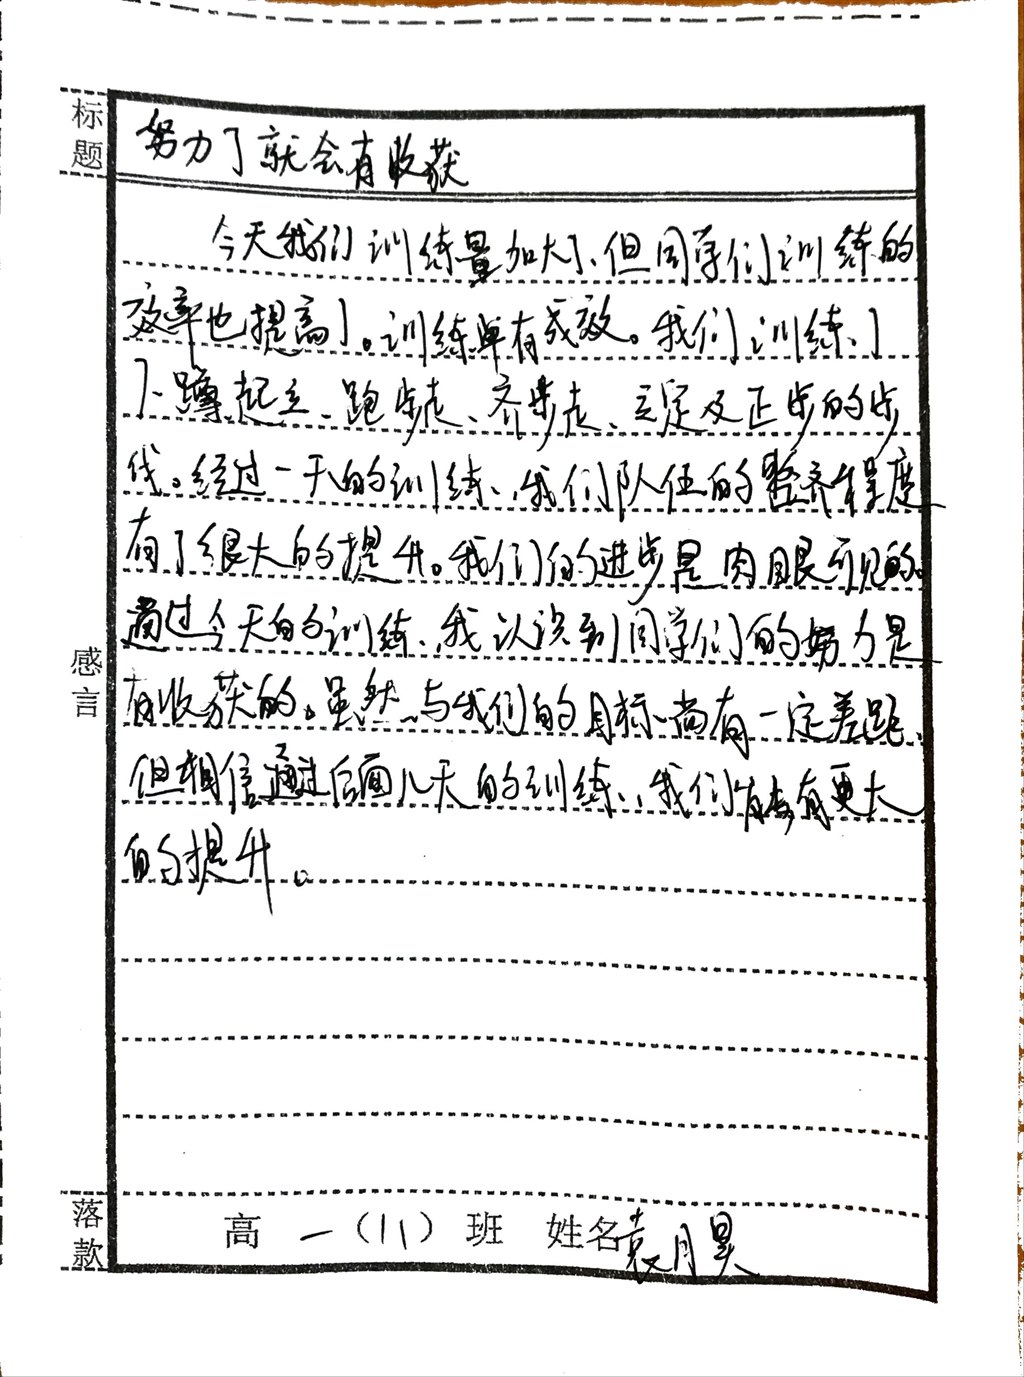 标题
努力了就会有收获
今天我们训练量加大了、但同学们训练的
效率也提高了。训练卓有成效。我们训练了
下蹲起立、跑步走、齐步走、立定及正步的步
伐。经过一天的训练、我们队伍的整齐程度
有了很大的提升。我们的进步是肉眼可见的。
通过今天的训练、我认识到同学们的努力是
有收获的。虽然与我们的目标尚有一定差距、
但相信通过后面几天的训练、我们会有更大
的提升。
感言
落款
高一(11)班 姓名袁月昊